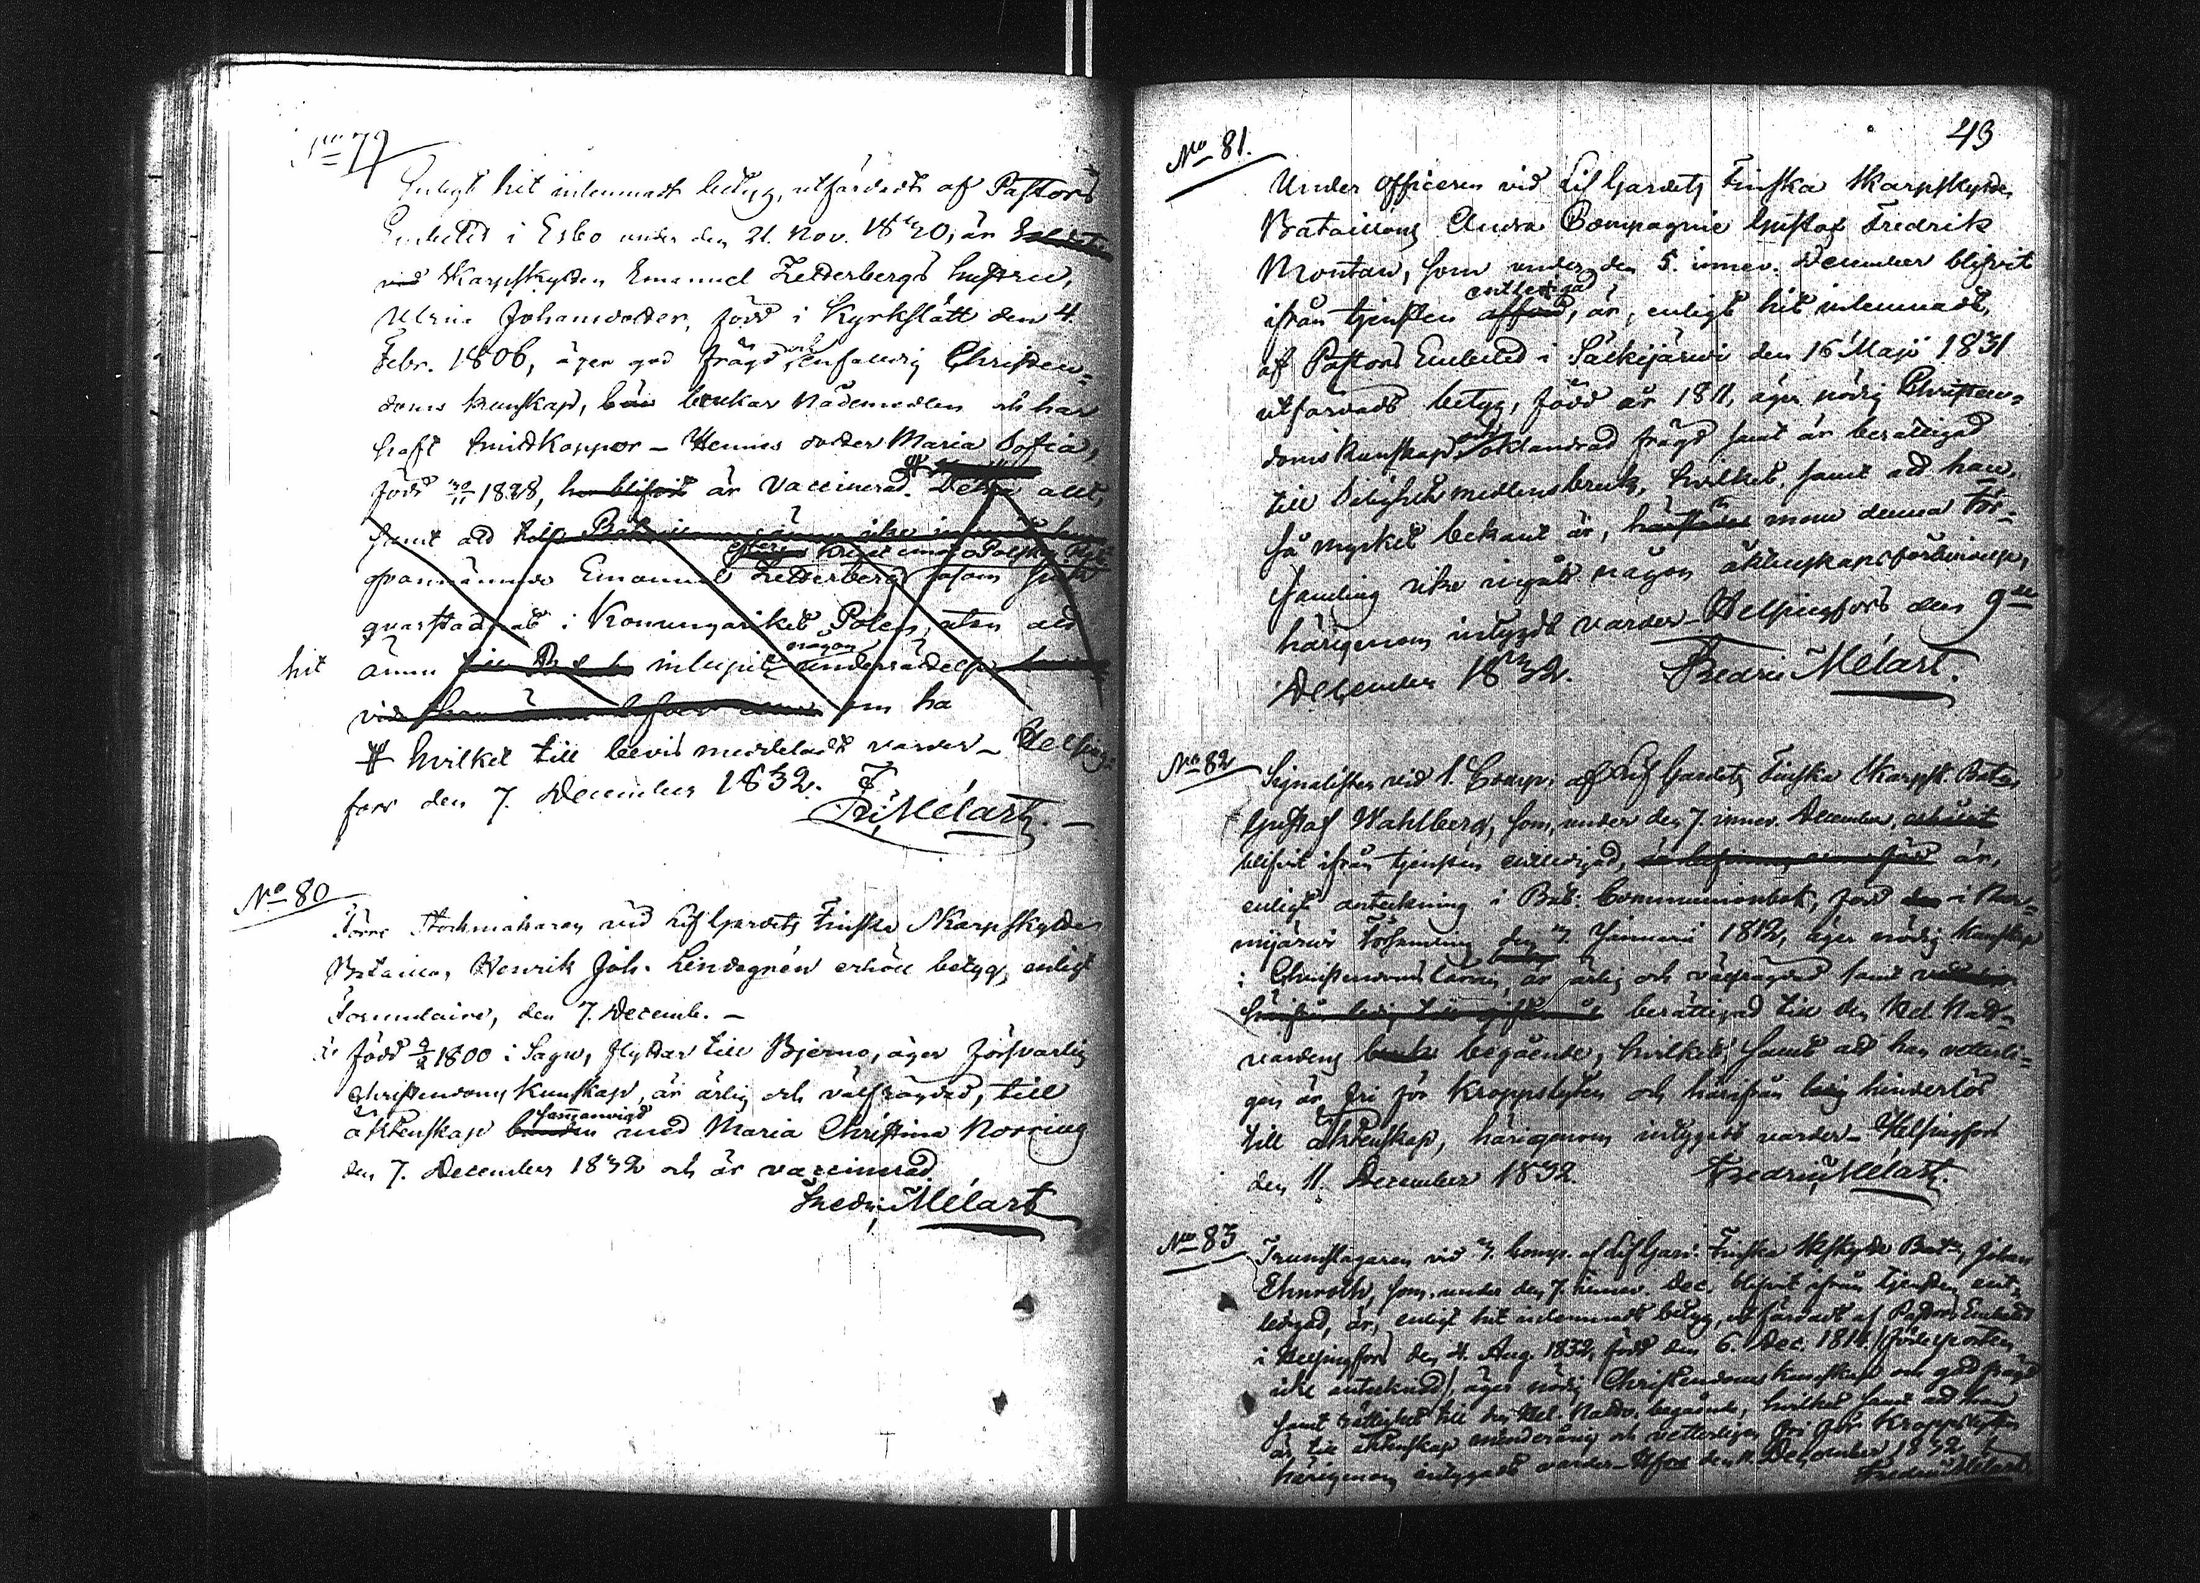 No 79
Enligt hit inlemnadt betyg, utfärdadt af Pastors
Embetet i Esbo under den 21. Nov. 1830, är
vid Skarpskytten Emanuel Zetterbergs hustru,
Ulrica Johansdotter, född i Kyrkslätt den 4.
Febr. 1806, äger god frägd, och enfaldig Christen-
doms kunskap, brukar nådemedlen och har
haft Smittkoppor – Hennes dotter Maria Sofia,
född 30/11 1828, har blifvit är Vaccinerad. Detta allt,
samt att
ofvannämnde Emanuel Zetterberg såsom sjuk
qvarstadnat i Konungariket Polen, utan att
hit ännu inlupit någon underrättelse
om ha
# hvilket till bevis meddeladt varder – Helsing-
fors den 7. December 1832.
Fr: Mélart. –
No 80
Förre Stockmakaren vid Lif Gardets Finska Skarpskytte
Bataillon, Henrik Joh. Lindegrén erhöll betyg, enligt
Formulaire, den 7. Decemb. –
född 1800 i Sagu, flyttar till Bjerno, äger försvarlig
Christendoms Kunskap, är ärlig och välfrägdad, till
sammanvigd
äktenskap bunden med Maria Christina Norring
den 7. December 1832 och är vaccinerad
Fredric Mélart
43
No 81.
Under officeren vid Lif Gardets Finska Skarpskytte
Bataillons Andra Compagnie Gustaf Fredrik
Montan, som under den 5. innev. December blifvit
entledigad
ifrån tjensten afförd, är, enligt hit inlemnadt,
af Pastors Embetet i Säckijärvi den 16 Maji 1831
utfärdadt betyg, född år 1811, äger nödig Christen-
doms kunskap, och oklandrad frägd samt är berättigad
till Salighetsmedlens bruk, hvilket, samt att han,
så mycket bekant är, inom denna För-
samling icke ingått någon äktenskapsförbindelse,
härigenom intygadt varder – Helsingfors den 9de
December 1832. Fredric Mélart.
No 82
Signalisten vid 1. Comp: af Lif Gardets Finska Skarpsk. Bat:
Gustaf Wahlberg, som, under den 7. innev. December,
blifvit ifrån tjensten entledigad, är,
enligt anteckning i Bat: Communionbok, född den i Nur-
mijärvi Församling den 7. Januarii 1812, äger nödig kunskap
i Christendoms läran, är ärlig och välfrägdad samt
berättigad till den Hel. Natt-
vardens bruk begående, hvilket, samt att han veterli-
gen är fri för Kroppslyten och härifrån ledig hinderlös
till äktenskap, härigenom intygadt varder – Helsingfors
den 11. December 1832. Fredric Mélart.
No 83
Trumslagaren vid 3. Comp. af Lif Gard: Finska Skskytte Bat:, Johan
Ehnroth, som under den 7. innev. Dec. blifvit ifrån tjensten ent-
ledigad, är, enligt hit inlemnadt betyg, utfärdadt af Pastors Embetet
i Helsingfors den 4. Aug. 1832, född den 6. Dec. 1814 (födelseorten
icke antecknad), äger nödig Christendoms kunskap och god frägd
samt rättighet till den Hel. Nattv. begående, hvilket samt att han
är till äktenskap minderårig och vetterligen fri för Kroppslyten
härigenom intygadt varder – Hfors den 11. December 1832
Fredric Mélart.